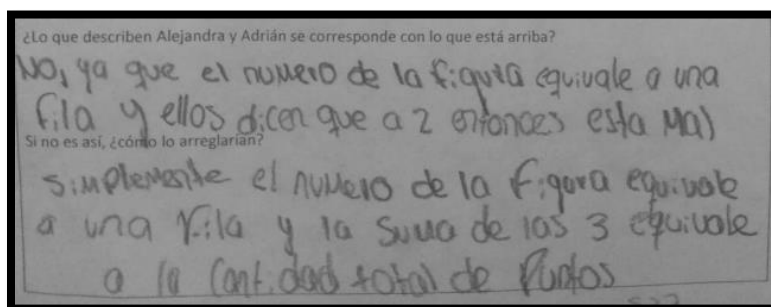 ¿Lo que describen Alejandra y Adrián se corresponde con lo que está arriba?
No, ya que el numero de la figura equivale a una
fila y ellos dicen que a 2 entonces esta mal
Si no es así, ¿cómo lo arreglarían?
simplemente el numero de la figura equivale
a una fila y la suma de las 3 equivale
a la cantidad total de puntos